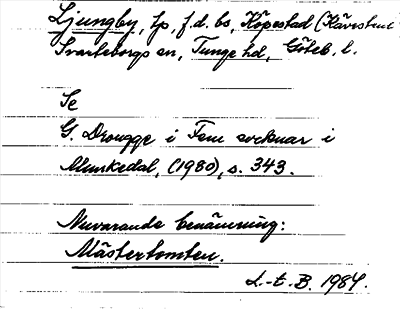 Ljungby, tp, f.d. bs, Köpestad (Kärrestad
Svarteborgs sn, Tunge hd, Göteb. l.
Se
G. Drougge i Fem socknar i
Munkedal, (1980), s. 343.
Nuvarande benämning:
Mästertomten.
L.-E. B. 1984.